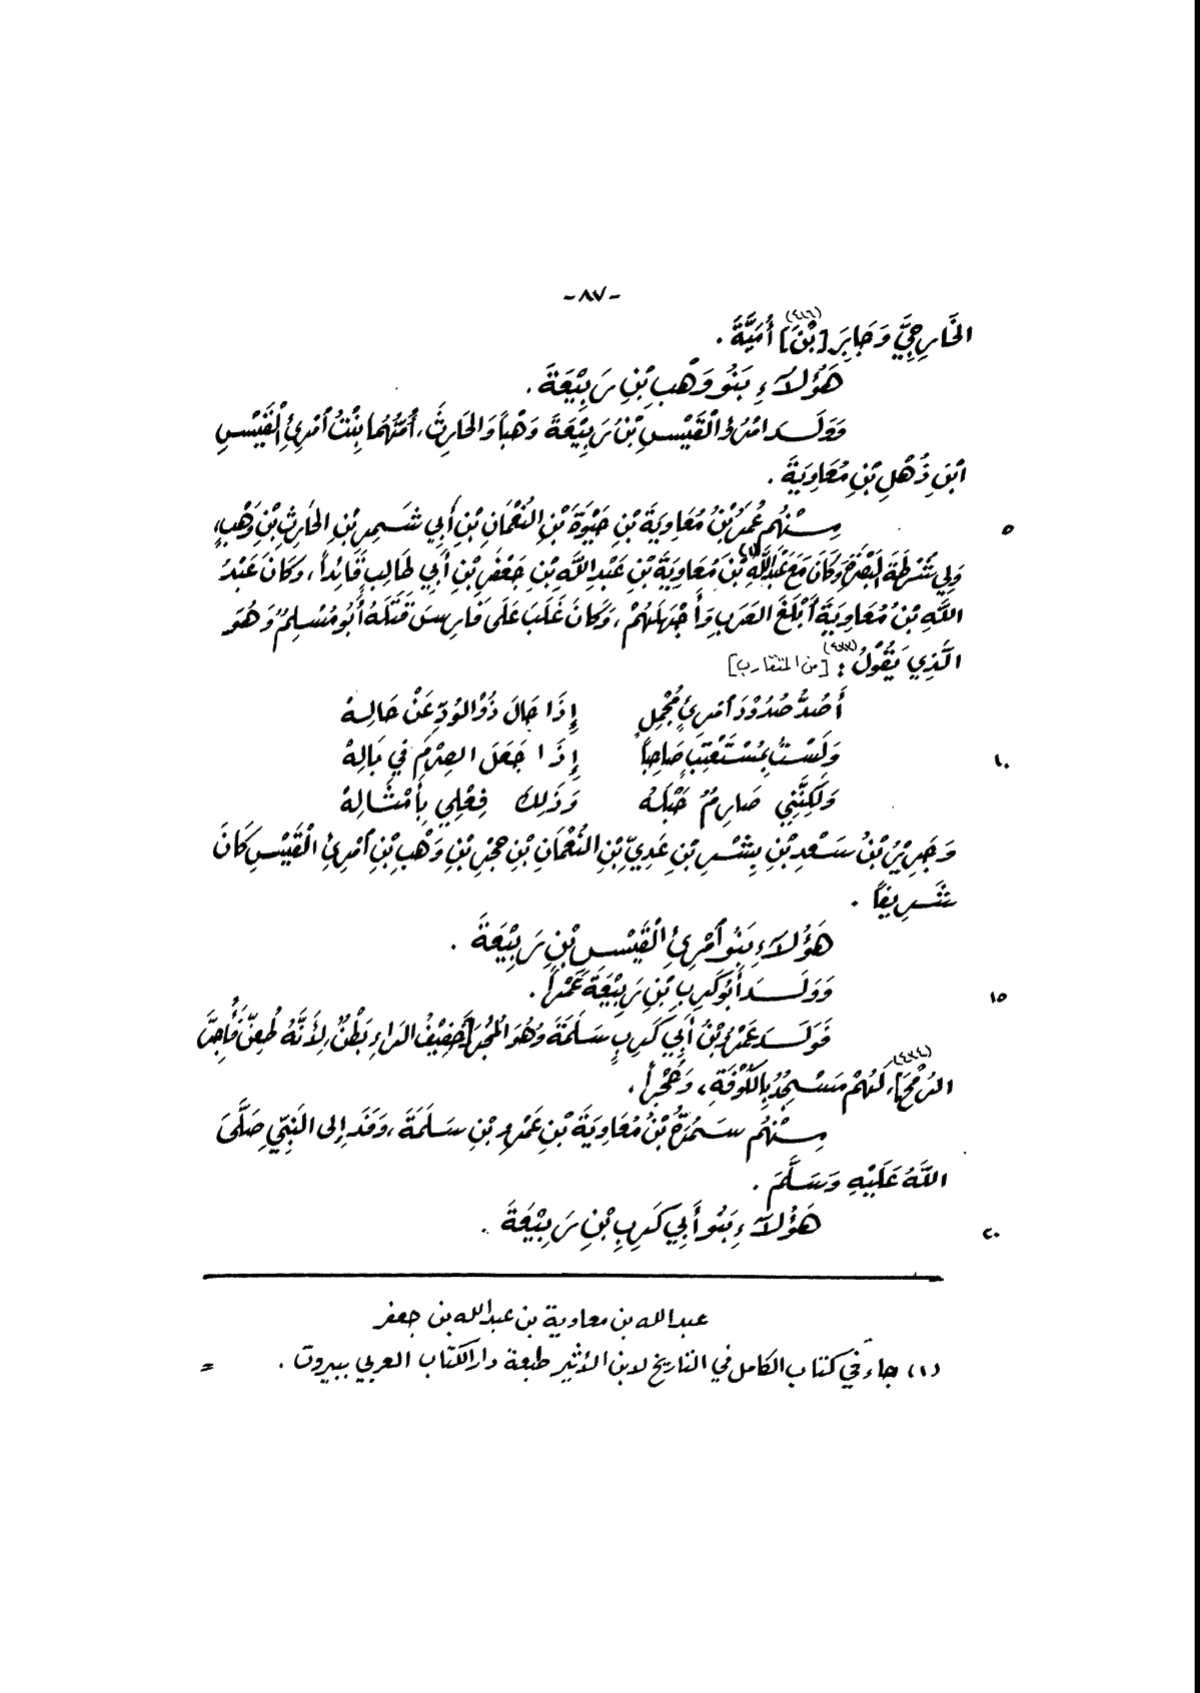 -٨٧-
الخَارِجِيَّ وَجَابِرَ [بْنَ] (٤٨٦) أُمَيَّةَ .
هَؤُلَاءِ بَنُو وَهْبِ بْنِ رَبِيْعَةَ .
وَوَلَدَ امْرُؤُ الْقَيْسِ بْنُ رَبِيْعَةَ وَهْبَاً وَالحَارِثَ، أُمُّهُمَا بِنْتُ أمْرِئِ الْقَيْسِ
ابْنِ ذُهْلِ بْنِ مُعَاوِيَةَ .
مِنْهُم عُمَرُ بْنُ مُعَاوِيَةَ بْنِ حَيْوَةَ بْنِ النُعْمَانِ بْنِ أَبِي شَمِرِ بْنِ الحَارِثِ بْنِ وَهْبٍ، ٥
وَلِيَ شُرْطَةَ البَصْرَةِ وَكَانَ مَعَ عَبْدِ اللَّهِ (١) بْنِ مُعَاوِيَةَ بْنِ عَبْدِ اللَّهِ بْنِ جَعْفَرِ بْنِ أَبِي طَالِبٍ قَائِداً، وَكَانَ عَبْدُ
اللَّهِ بْنُ مُعَاوِيَةَ أَبْلَغَ العَرَبِ وَأَجْهَلَهُمْ، وَكَانَ غَلَبَ عَلَى فَارِسَ قَتَلَهُ أَبُو مُسْلِمٍ وَهُوَ
الَّذِي يَقُوْلُ : [من المتقارب]
أَصُدُّ صُدُوْدَ أمْرِئٍ مُجْمِلٍ إِذَا حَالَ ذُوْ الوُدِّ عَنْ حَالِهْ
وَلَسْتُ بِمُسْتَعْتِبٍ صَاحِبَاً إِذَا جَعَلَ الصِرْمَ فِي بَالِهْ ١٠
وَلَكِنَّنِي صَارِمٌ حَبْلَهُ وَذَلِكَ فِعْلِي بِأَمْثَالِهْ
وَجَرِيْرُ بْنُ سَعْدِ بْنِ بِشْرِ بْنِ عَدِيِّ بْنِ النُعْمَانِ بْنِ حُجْرِ بْنِ وَهْبِ بْنِ أمْرِئِ الْقَيْسِ كَانَ
شَرِيفَاً .
هَؤُلَاءِ بَنُو أمْرِئِ الْقَيْسِ بْنِ رَبِيْعَةَ .
وَوَلَدَ أَبُو كَرِبِ بْنِ رَبِيْعَةَ عَمْرَاً . ١٥
فَوَلَدَ عَمْرُو بْنُ أَبِي كَرِبٍ سَلَمَةَ وَهُوَ الْمُجِرَ [خَفِيْفُ الرَاءِ بَطْنٌ، لِأَنَّهُ طُعِنَ فَأُجِرَّ
الرُمْحَ] (٤٨٤)، لَهُمْ مَسْجِدٌ بِالكُوْفَةِ، وَحُجْرَاً .
مِنْهُم سَمُرَةُ بْنُ مُعَاوِيَةَ بْنِ عَمْرِو بْنِ سَلَمَةَ، وَفَدَ إِلى النَبِيِّ صَلَّى
اللَّهُ عَلَيْهِ وَسَلَّمَ .
هَؤُلَاءِ بَنُو أَبِي كَرِبِ بْنِ رَبِيْعَةَ . ٢٠
عبد الله بن معاوية بن عبد الله بن جعفر
(١) جاء في كتاب الكامل في التاريخ لابن الأثير طبعة دار الكتاب العربي ببيروت . =